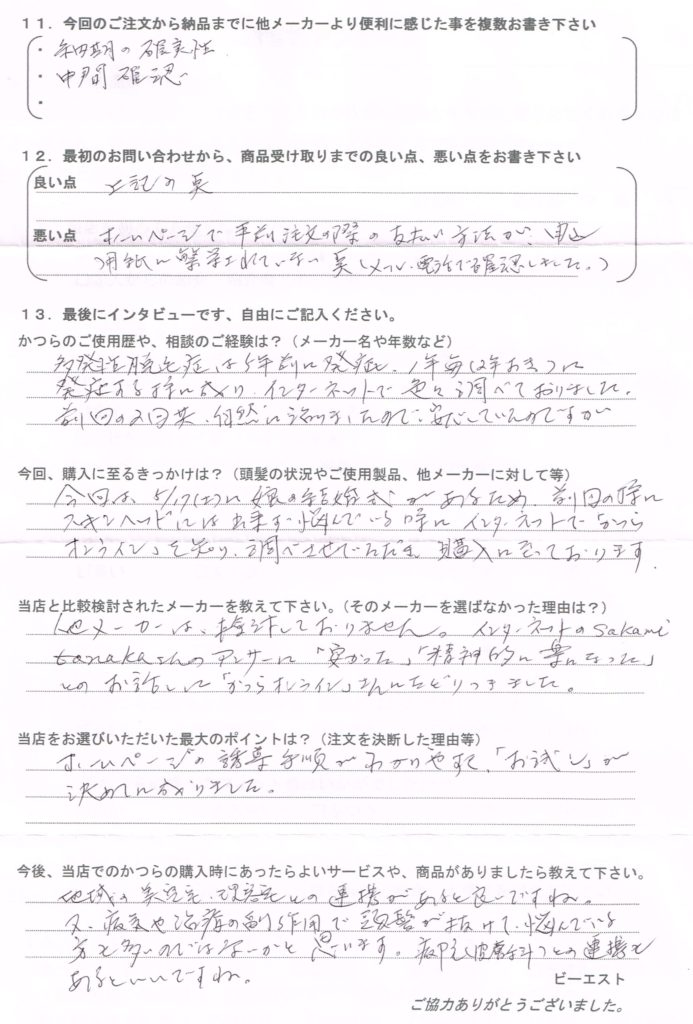 11．今回のご注文から納品までに他メーカーより便利に感じた事を複数お書き下さい
・納期の確実性
・中間確認
・
12．最初のお問い合わせから、商品受け取りまでの良い点、悪い点をお書き下さい
良い点 上記の英
悪い点 ホームページで事前注文の際の支払い方法が、申込
用紙に繁栄されていない英（メール、電話で確認しました。）
13．最後にインタビューです、自由にご記入ください。
かつらのご使用歴や、相談のご経験は？（メーカー名や年数など）
多発性脱毛症は5年前に発症し、1年毎、2年おきつに
発症する様になり、インターネットで色々調べておりました。
前回の2回共、自然に治りましたので、安心していたのですが
今回、購入に至るきっかけは？（頭髪の状況やご使用製品、他メーカーに対して等）
今回は、5/17(土)に娘の結婚式があるため、前回の様に
スキンヘッドには出来ず悩んでいる時にインターネットで「かつら
オンライン」を知り、調べさせていただき、購入に至っております。
当店と比較検討されたメーカーを教えて下さい。（そのメーカーを選ばなかった理由は？）
他メーカーは、検討しておりません。インターネットのsakami
tanakaさんのアンサーに「安かった」「精神的に楽になった」
とのお話しで「かつらオンライン」さんにたどりつきました。
当店をお選びいただいた最大のポイントは？（注文を決断した理由等）
ホームページの誘導手順がわかりやすく、「お試し」が
決めてになりました。
今後、当店でのかつらの購入時にあったらよいサービスや、商品がありましたら教えて下さい。
地域の美容室、理容室との連携があると良いですね。
又、病気や治療の副作用で頭髪が抜けて、悩んでいる
方も多いのではないかと思います。病院（皮膚科）との連携も
あるといいですね。
ビーエスト
ご協力ありがとうございました。